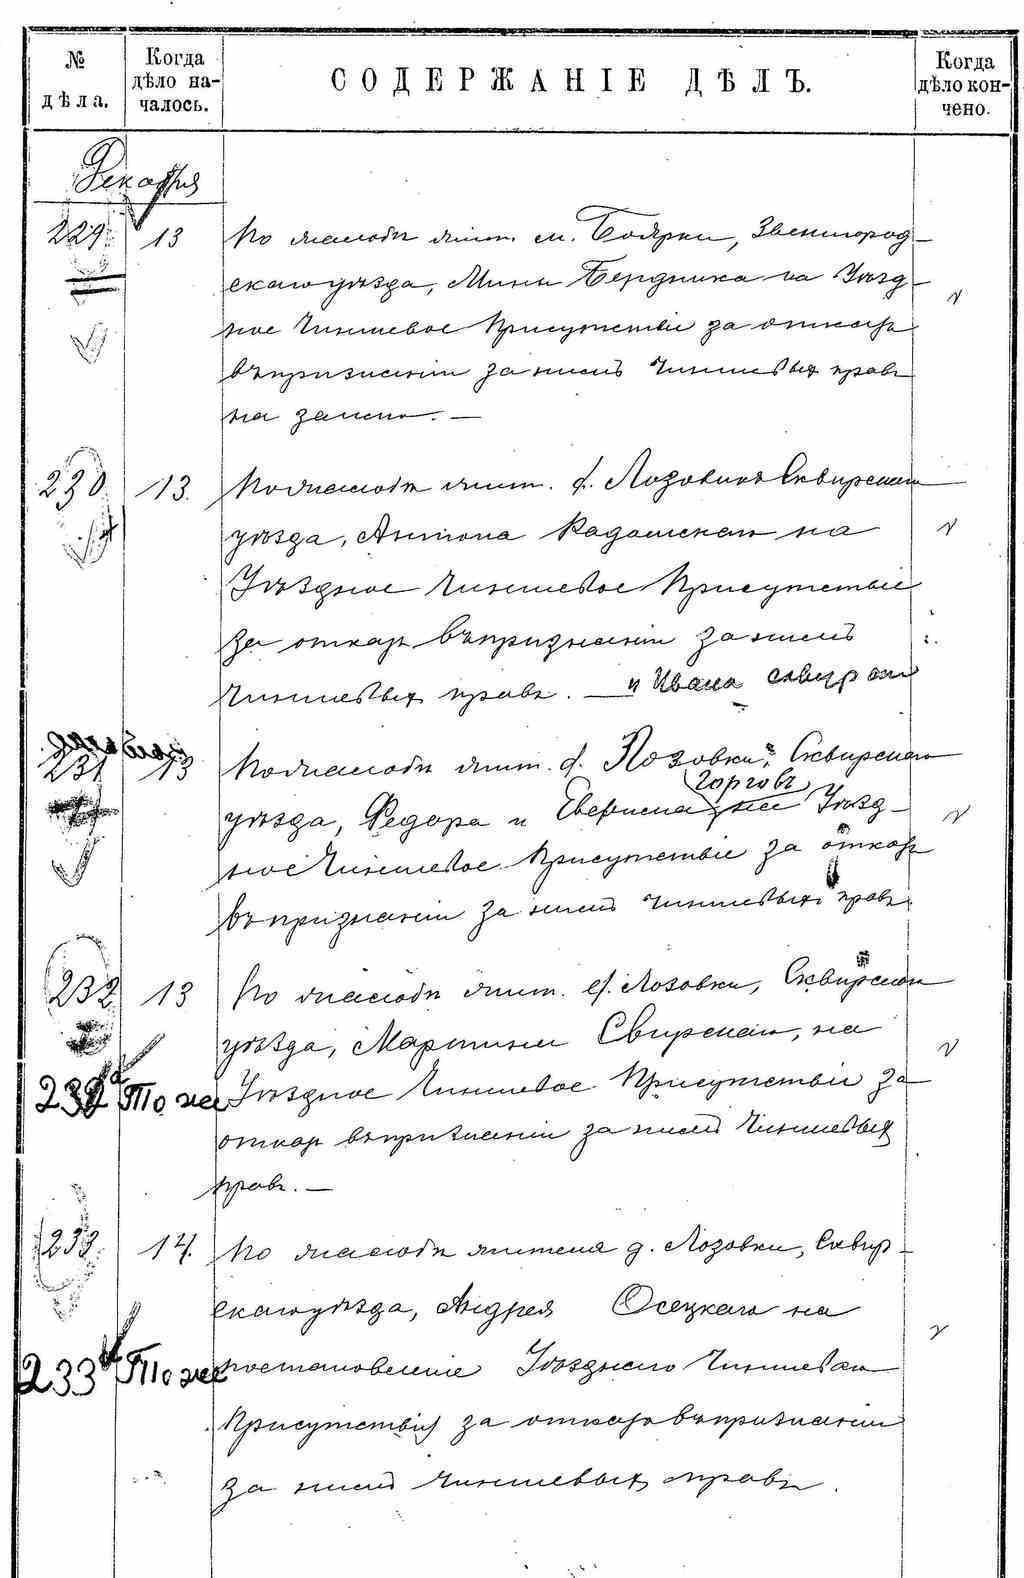 № дѣла.
Когда дѣло на-чалось.
СОДЕРЖАНІЕ ДѢЛЪ.
Когда дѣло кон-чено.
Декабря
229 13 По жалобѣ жит. м. Боярки, Звенигород-
скаго уѣзда, Мины Бердника на Уѣзд-
ное Чиншевое Присутствіе за отказъ
въ признаніи за нимъ чиншевыхъ правъ
на землю. —
230 13. По жалобѣ жит. д. Лозовики Сквирскаго
уѣзда, Антона Радомскаго на
Уѣздное Чиншевое Присутствіе
за отказъ въ признаніи за нимъ
чиншевыхъ правъ. — и Ивана
231 13 По жалобѣ жит. д. Лозовки, Сквирскаго
уѣзда, Федора и на Уѣзд-
ное Чиншевое Присутствіе за отказъ
въ признаніи за нимъ чиншевыхъ правъ
232 13 По жалобѣ жит. д. Лозовки, Сквирскаго
уѣзда, Мартина Свирскаго, на
232а То же Уѣздное Чиншевое Присутствіе за
отказъ въ признаніи за нимъ чиншевыхъ
правъ. —
233. 14. По жалобѣ жителя д. Лозовки, Сквир-
скаго уѣзда, Андрея Осецкаго на
233а То же постановленіе Уѣзднаго Чиншеваго
Присутствія за отказъ въ признаніи
за нимъ чиншевыхъ правъ.